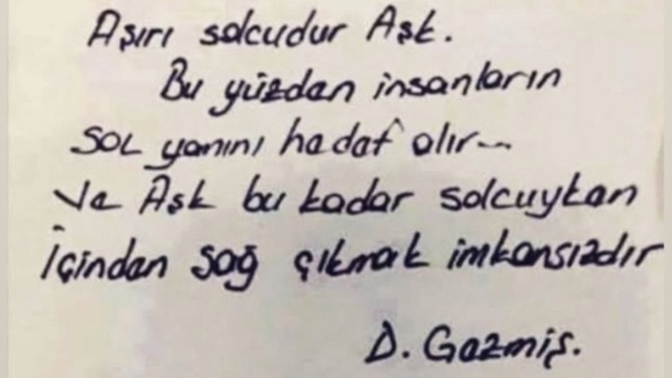 Aşırı solcudur Aşk.
Bu yüzden insanların
SOL yanını hedef alır...
Ve Aşk bu kadar solcuyken
İçinden sağ çıkmak imkansızdır
D. Gezmiş.